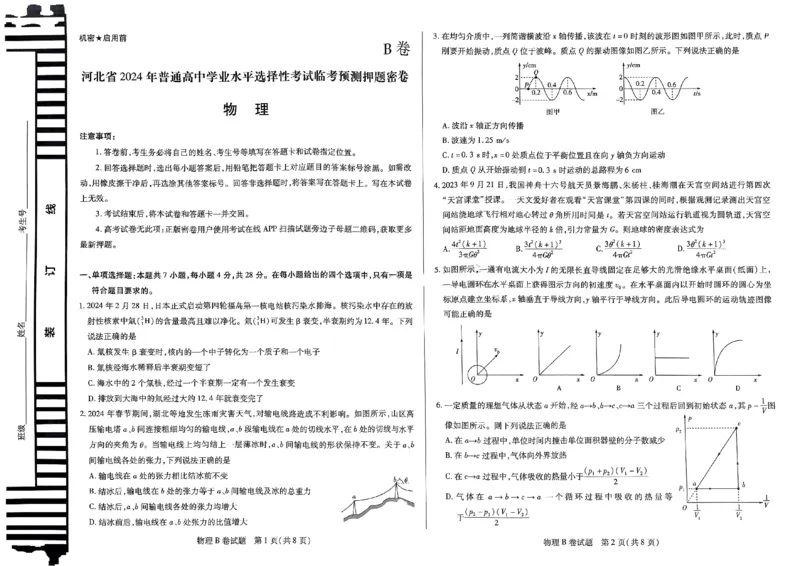 机密★启用前
B 卷
河北省 2024 年普通高中学业水平选择性考试临考预测押题密卷
物 理
注意事项：
1. 答卷前,考生务必将自己的姓名、考生号等填写在答题卡和试卷指定位置。
2. 回答选择题时,选出每小题答案后,用铅笔把答题卡上对应题目的答案标号涂黑。如需改
动,用橡皮擦干净后,再选涂其他答案标号。回答非选择题时,将答案写在答题卡上。写在本试卷
上无效。
3. 考试结束后,将本试卷和答题卡一并交回。
4. 高考试卷无此项:正版密卷用户使用考试在线 APP 扫描试题旁边子母题二维码,获取更多
最新押题。
一、单项选择题:本题共 7 小题,每小题 4 分,共 28 分。在每小题给出的四个选项中,只有一项是
符合题目要求的。
1. 2024 年 2 月 28 日,日本正式启动第四轮福岛第一核电站核污染水排海。核污染水中存在的放
射性核素中氚(³₁H)的含量最高且难以净化。氚(³₁H)可发生 β 衰变,半衰期约为 12.4 年。下列
说法正确的是
A. 氚核发生 β 衰变时,核内的一个中子转化为一个质子和一个电子
B. 氚核经海水稀释后半衰期变短了
C. 海水中的 2 个氚核,经过一个半衰期一定有一个发生衰变
D. 排放到大海中的氚经过大约 12.4 年就衰变完了
2. 2024 年春节期间,湖北等地发生冻雨灾害天气,对输电线路造成不利影响。如图所示,山区高
压输电塔 a、b 间连接粗细均匀的输电线,a、b 段输电线在 a 处的切线水平,在 b 处的切线与水平
方向的夹角为 θ。当输电线上均匀结上一层薄冰时,a、b 间输电线的形状保持不变。关于 a、b
间输电线各处的张力,下列说法正确的是
A. 输电线在 a 处的张力相比结冰前不变
B. 结冰后,输电线在 b 处的张力等于 a、b 间输电线及冰的总重力
C. 结冰后,a、b 间输电线各处的张力均增大
D. 结冰前后,输电线在 a、b 处张力的比值增大
a
b
θ
物理 B 卷试题 第 1 页(共 8 页)
3. 在均匀介质中,一列简谐横波沿 x 轴传播,该波在 t=0 时刻的波形图如图甲所示,此时,质点 P
刚要开始振动,质点 Q 位于波峰。质点 Q 的振动图像如图乙所示。下列说法正确的是
y/cm
2
0
-2
P
Q
0.2 0.4 0.6
x/m
图甲
y/cm
2
0
-2
0.2 0.4 0.6
t/s
图乙
A. 波沿 x 轴正方向传播
B. 波速为 1.25 m/s
C. t=0.3 s 时,x=0 处质点位于平衡位置且在向 y 轴负方向运动
D. 质点 Q 从开始振动到 t=0.3 s 时运动的总路程为 6 cm
4. 2023 年 9 月 21 日,我国神舟十六号航天员景海鹏、朱杨柱、桂海潮在天宫空间站进行第四次
“天宫课堂”授课。一天文爱好者在观看“天宫课堂”第四课的同时,根据观测记录测出天宫空
间站绕地球飞行相对地心转过 θ 角所用时间是 t。若天宫空间站运行轨道视为圆轨道,天宫空
间站距地面高度为地球半径的 k 倍,引力常量为 G。则地球的密度表达式为
5. 如图所示,一通有电流大小为 I 的无限长直导线固定在足够大的光滑绝缘水平桌面(纸面)上,
一导电圆环在水平桌面上获得图示方向的初速度 v₀。在水平桌面内以开始时圆环的圆心为坐
标原点建立坐标系,x 轴垂直于导线方向,y 轴平行于导线方向。此后导电圆环的运动轨迹图像
可能正确的是
I
v₀
y
O
x
A
B
C
D
6. 一定质量的理想气体从状态 a 开始,经 a→b、b→c、c→a 三个过程后回到初始状态 a,其 p−1/V 图
像如图所示。则下列说法正确的是
A. 在 a→b 过程中,单位时间内撞击单位面积器壁的分子数减少
B. 在 b→c 过程中,气体向外界放热
C. 在 c→a 过程中,气体吸收的热量小于 (p₁+p₂)(V₁−V₂)/2
D. 气体在 a→b→c→a 一个循环过程中吸收的热量等
于 (p₂−p₁)(V₁−V₂)/2
p
p₂
p₁
c
a
b
O
1/V₁
1/V₂
1/V
物理 B 卷试题 第 2 页(共 8 页)
考生号
姓名
班级
线
订
装